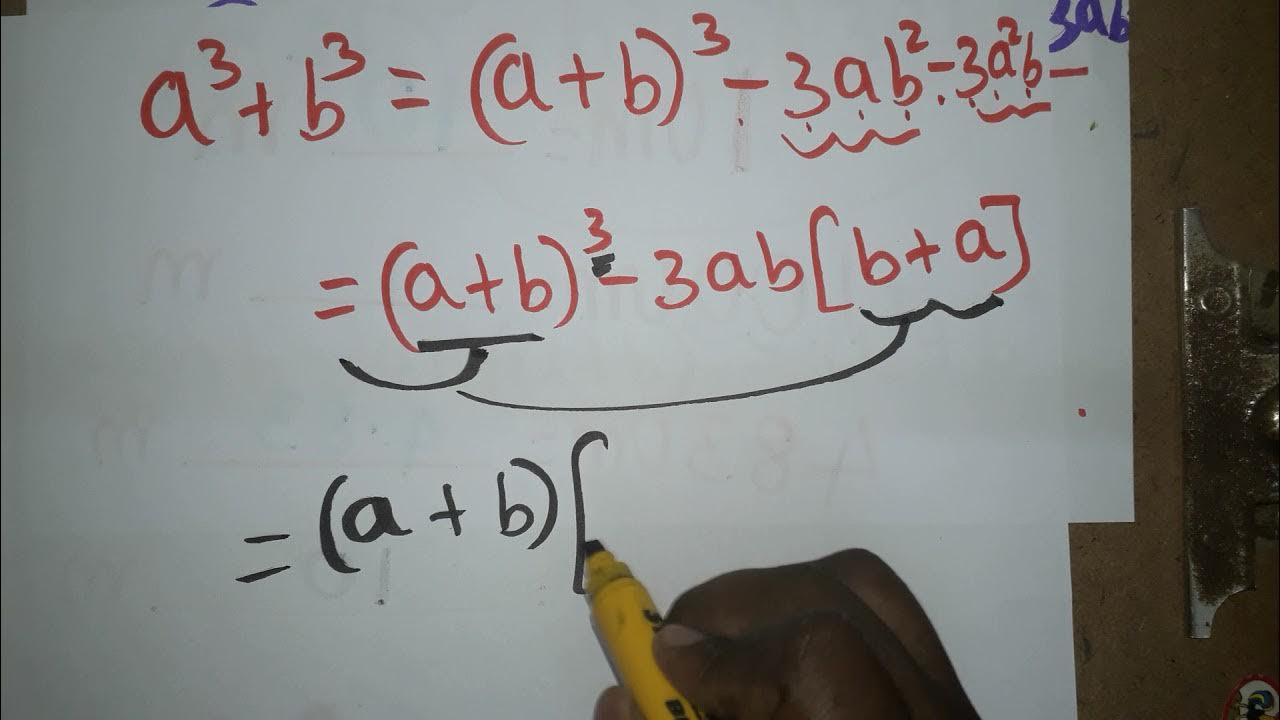 3ab
a³+b³ = (a+b)³ - 3ab² - 3a²b -
= (a+b)³ - 3ab[b+a]
= (a+b)[